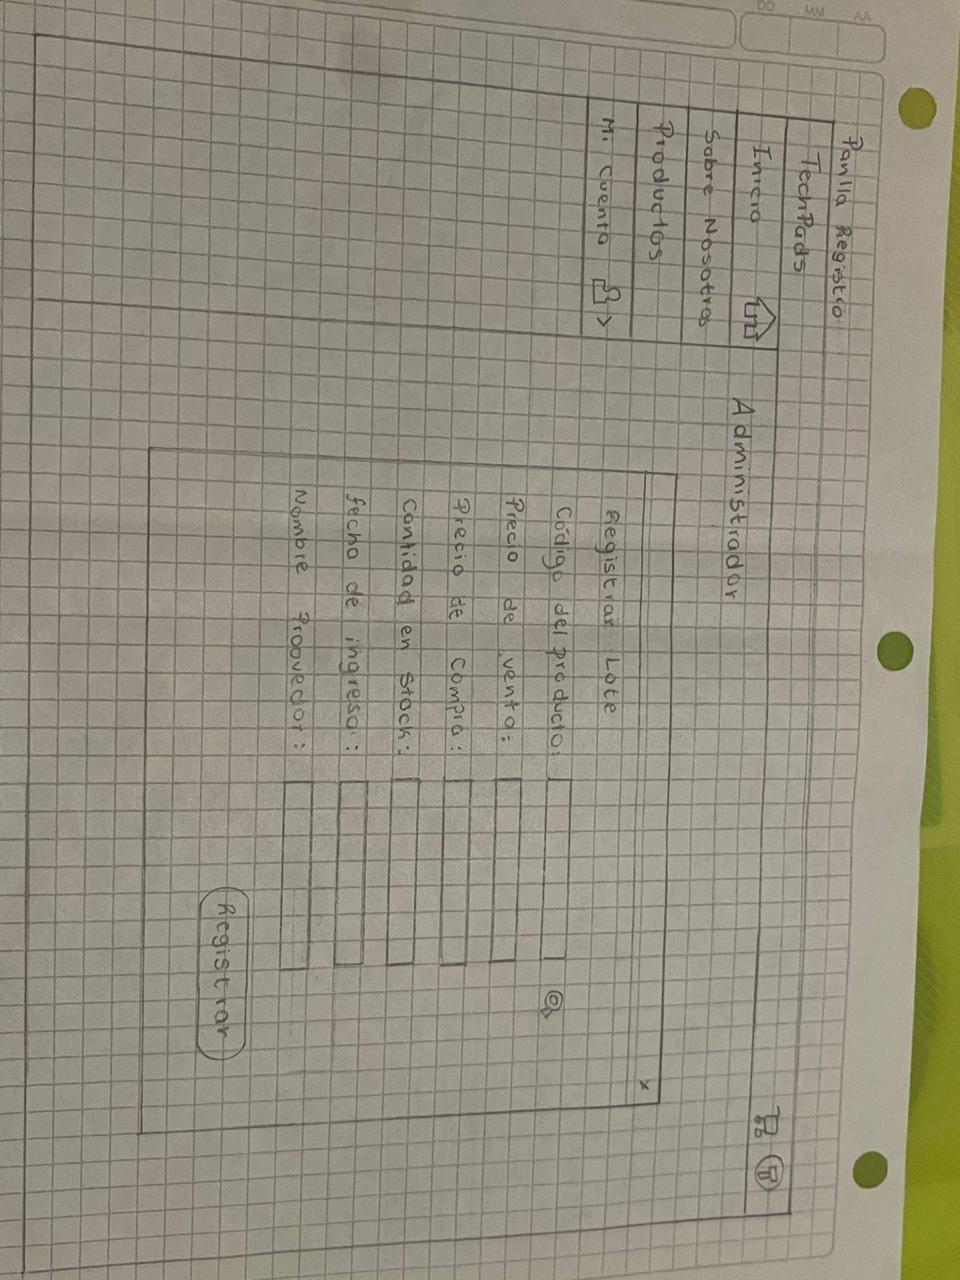 DD MM AA
Panlla Registro
TechPads
Inicio
Administrador
Sobre Nosotros
Productos
Mi Cuenta >
x
Registrar Lote
Código del producto:
Precio de venta:
Precio de Compra:
Cantidad en Stock:
fecha de ingreso:
Nombre Proovedor:
Registrar